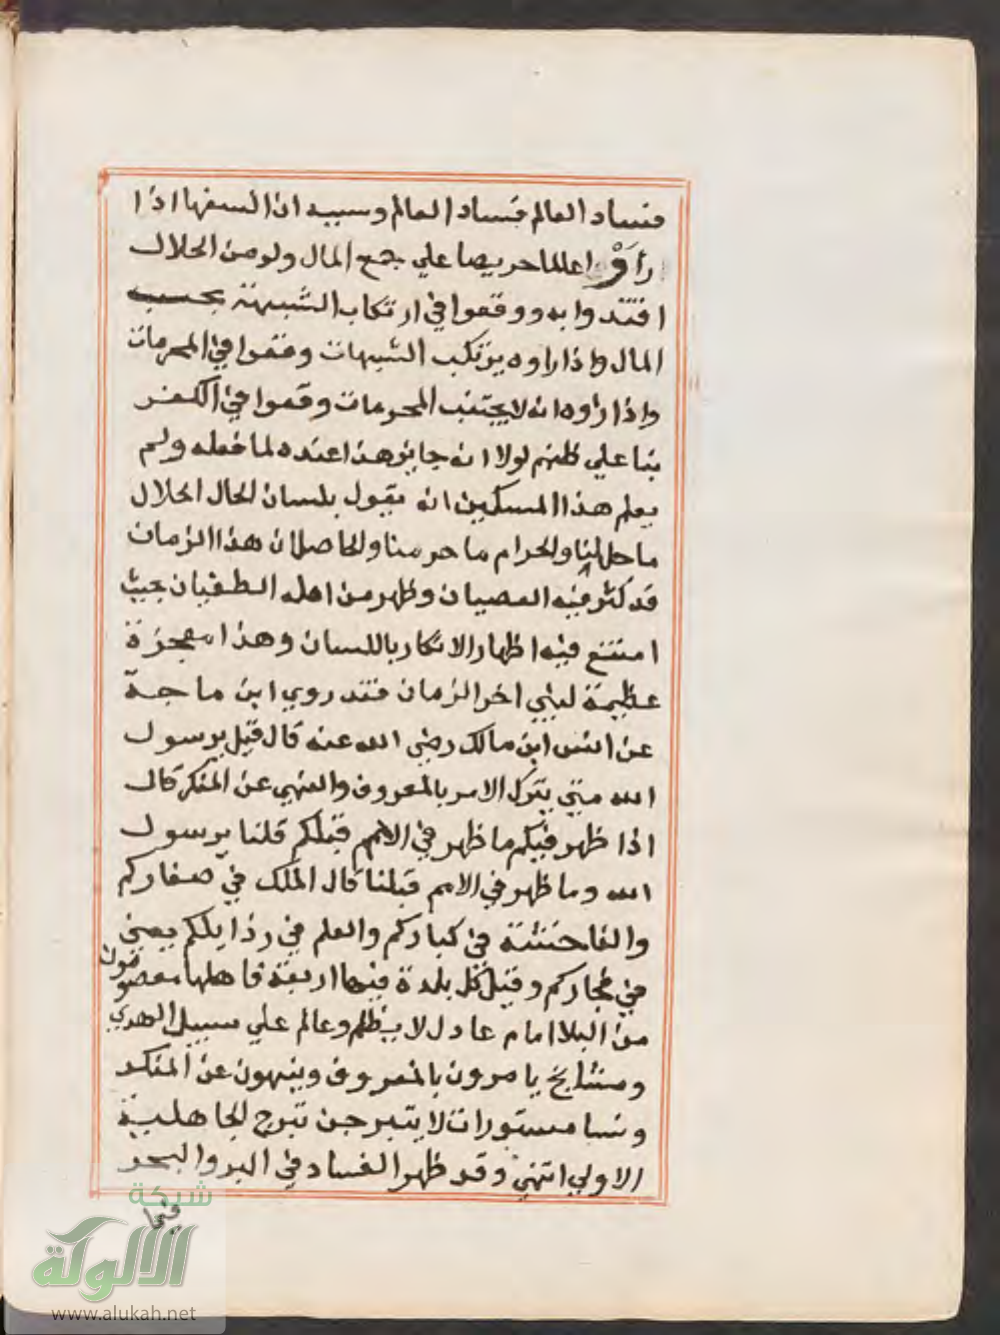 فساد العالم فساد العالم وسببه ان السفها اذا
راوا عالما حريصا علي جمع المال ولو من الحلال
اقتدوا به ووقعوا في ارتكاب الشبهة بحسب
المال واذا راوه يرتكب الشبهات وقعوا في المحرمات
واذا راوه انه لا يجتنب المحرمات وقعوا في الكفر
بنا علي ظنهم لولا انه جايز هذا عنده لما فعله ولم
يعلم هذا المسكين انه يقول بلسان الحال الحلال
ما حل لنا والحرام ما حرمنا والحاصل ان هذا الزمان
قد كثر فيه العصيان وظهر من اهله الطغيان بحيث
امتنع فيه اظهار الانكار باللسان وهذا معجزة
عظيمة لنبي اخر الزمان فقد روي ابن ماجة
عن انس ابن مالك رضي الله عنه قال قيل يرسول
الله متي يترك الامر بالمعروف والنهي عن المنكر قال
اذا ظهر فيكم ما ظهر في الامم قبلكم قلنا يرسول
الله وما ظهر في الامم قبلنا قال الملك في صغاركم
والفاحشة في كباركم والعلم في رذايلكم يعني
في فجاركم وقيل كل بلدة فيها اربعة فاهلها معصومون
من البلا امام عادل لا يظلم وعالم علي سبيل الهدي
ومشايخ يامرون بالمعروف وينهون عن المنكر
ونسا مستورات لا يتبرجن تبرج الجاهلية
الاولي انتهي وقد ظهر الفساد في البر والبحر
فيما
شبكة
الألوكة
www.alukah.net